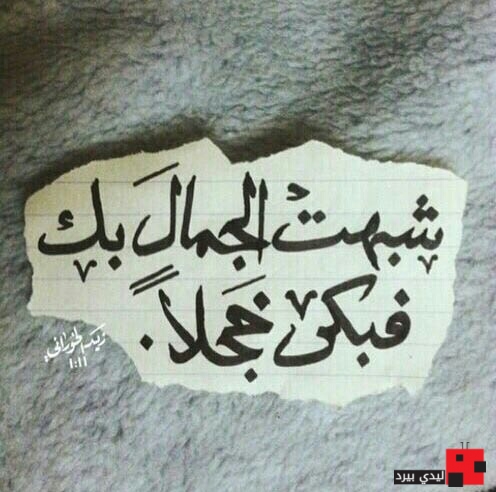 شبهتُ الجمالَ بك
فبكى خَجلاً.
١:١١
ليدي بيرد